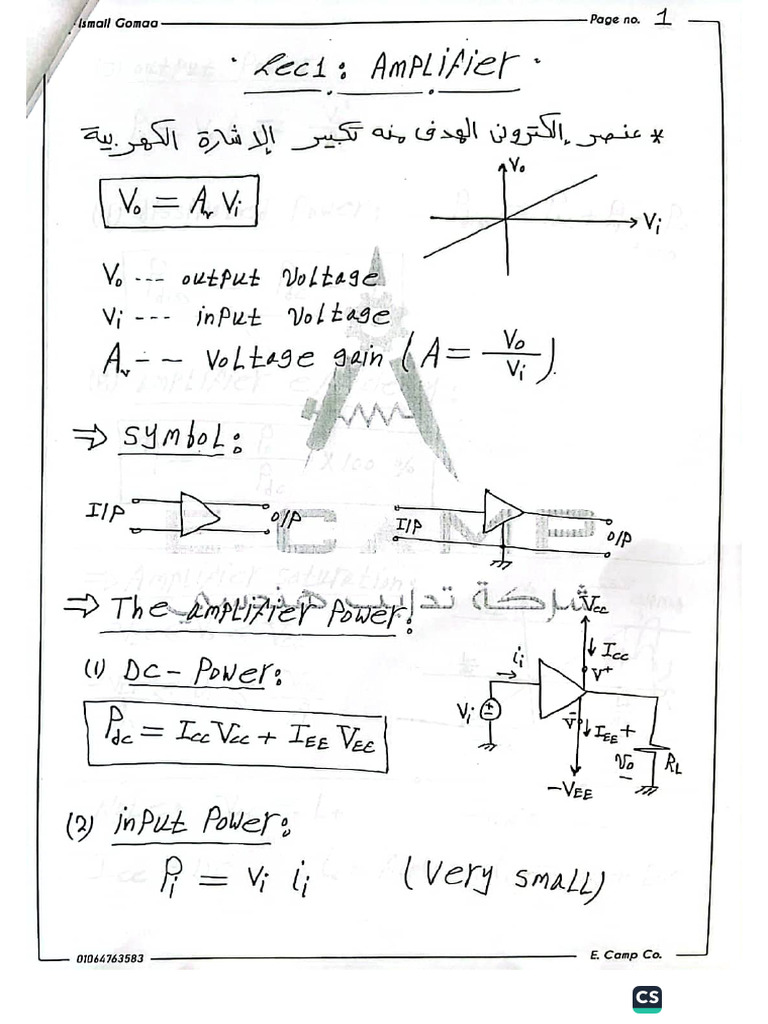 Ismail Gomaa
Page no. 1
Lec1: Amplifier
* عنصر إلكترونى الهدف منه تكبير الإشارة الكهربية
Vo = Av Vi
Vo
Vi
Vo --- output Voltage
Vi --- input Voltage
Av -- Voltage gain (A = Vo/Vi).
⇒ Symbol:
I/P
O/P
I/P
O/P
E.CAMP
شركة تداريب هندسية
⇒ The amplifier Power:
(1) DC-Power:
Pdc = Icc Vcc + IEE VEE
Vcc
Icc
V+
ii
Vi
+
-
V-
IEE
+
Vo
-
RL
-VEE
(2) input Power:
Pi = Vi ii (Very small)
01064763583
E. Camp Co.
CS